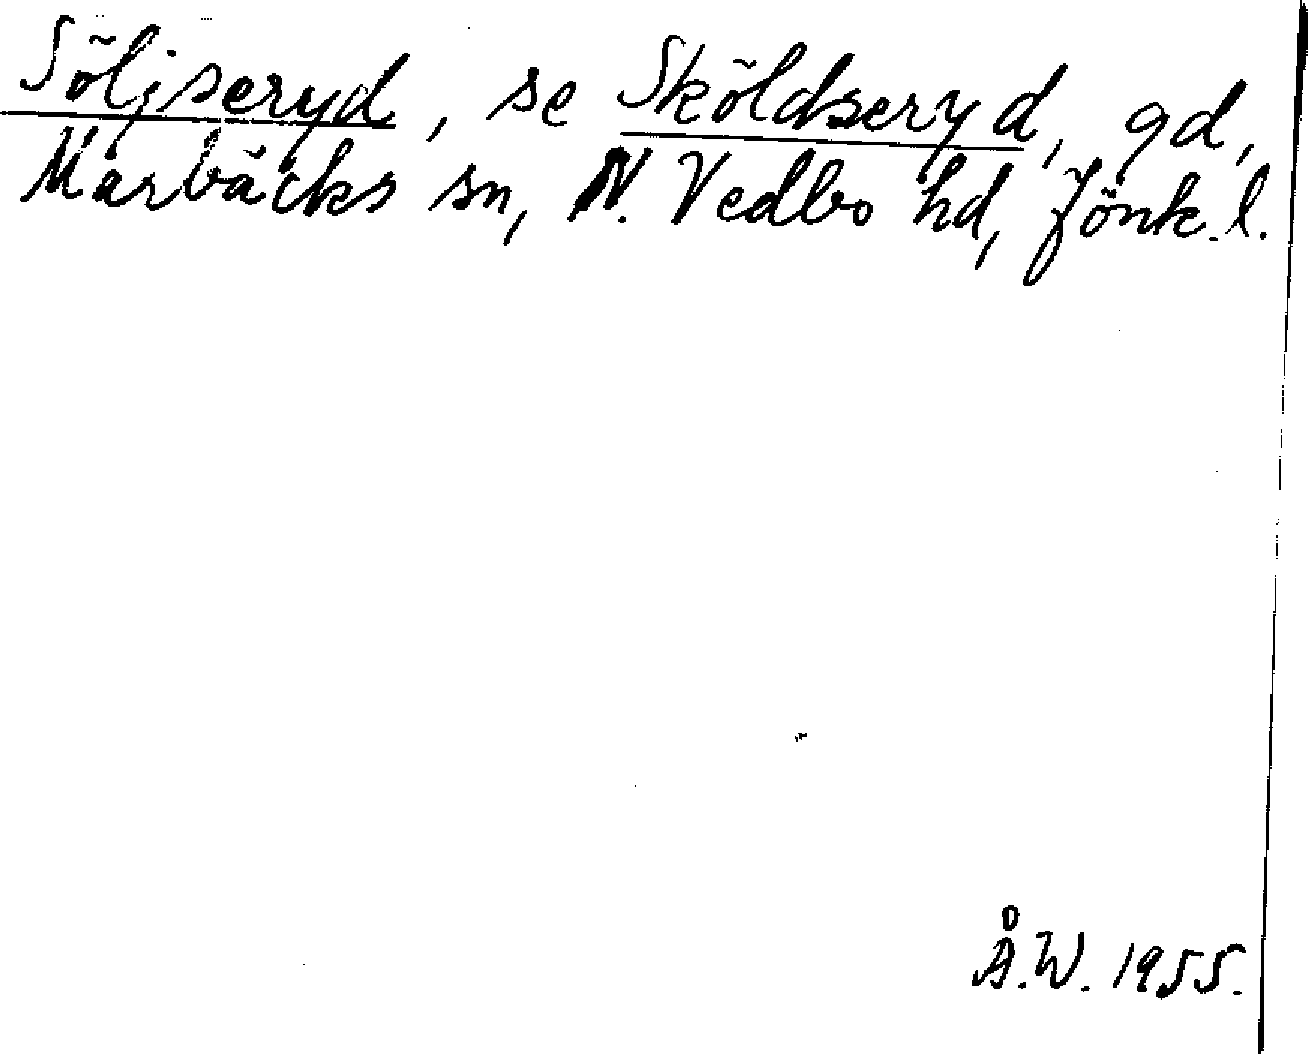 Söljseryd, se Sköldseryd, gd,
Marbäcks sn, N. Vedbo hd, Jönk. l.
Å.W. 1955.